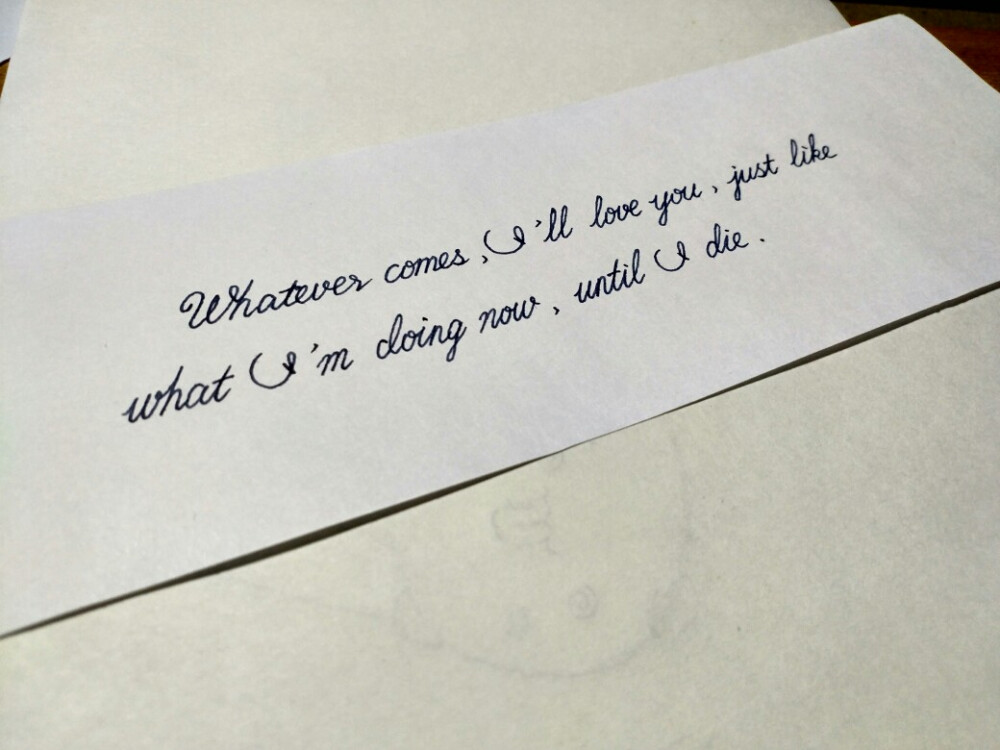 Whatever comes, I'll love you, just like
what I'm doing now, until I die.